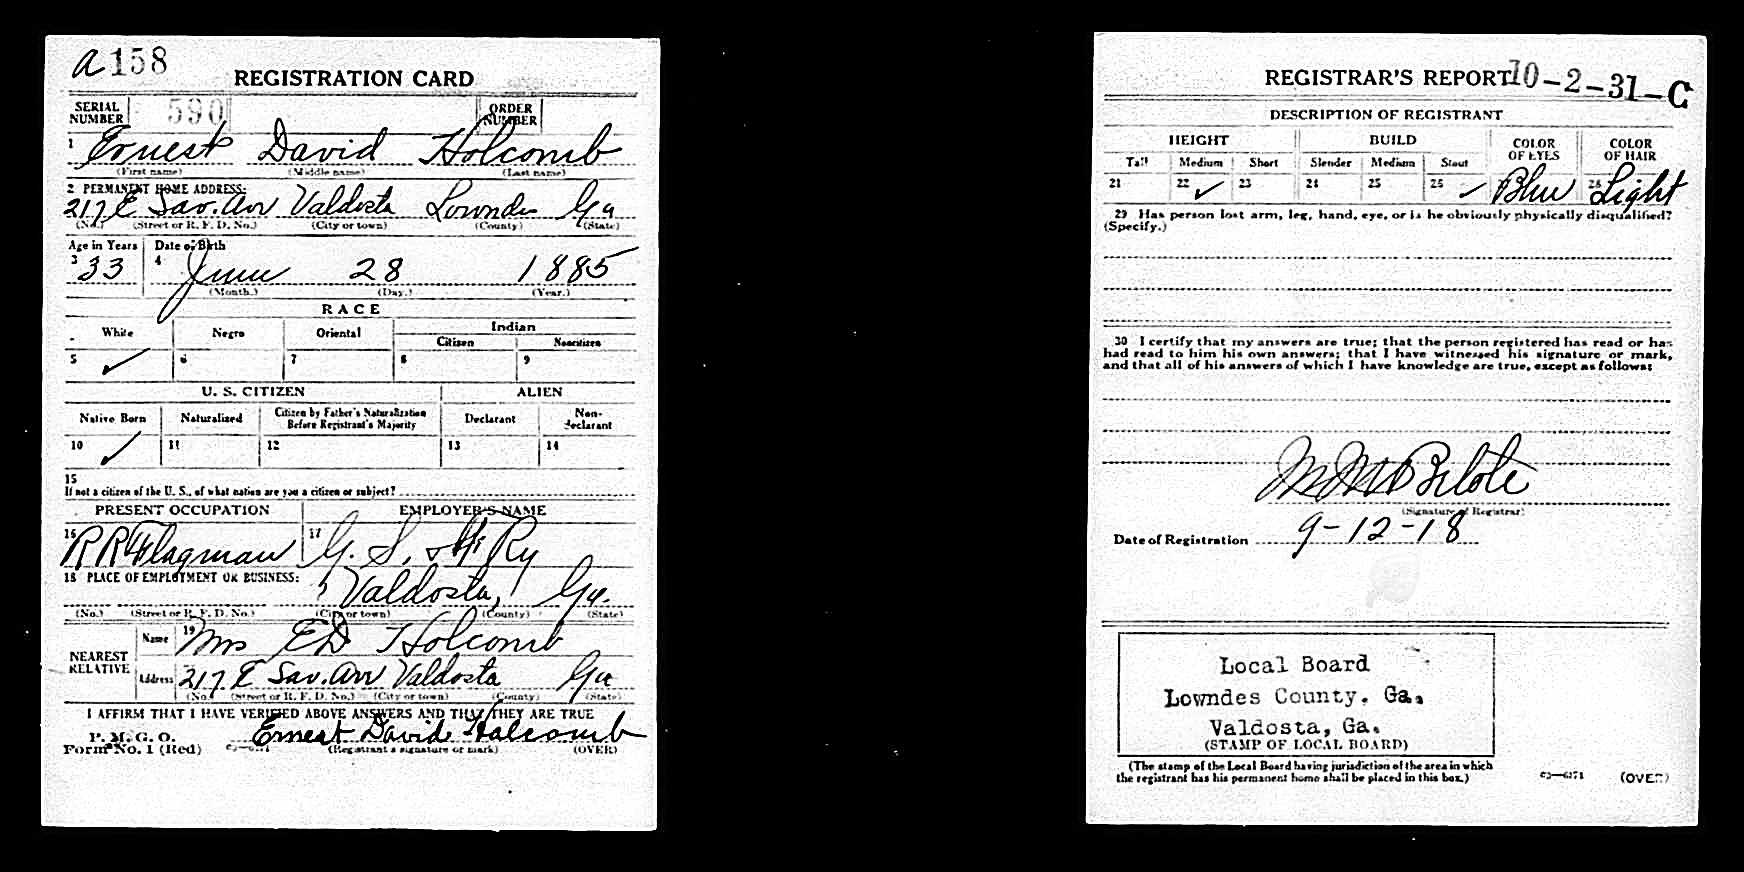 a158
REGISTRATION CARD
SERIAL NUMBER 590 ORDER NUMBER
1 Ernest David Holcomb
(First name) (Middle name) (Last name)
2 PERMANENT HOME ADDRESS:
217 E Sav. Av Valdosta Lowndes Ga
(No.) (Street or R. F. D. No.) (City or town) (County) (State)
Age in Years Date of Birth
3 33 4 June 28 1885
(Month.) (Day.) (Year.)
RACE
White Negro Oriental Indian
Citizen Noncitizen
5 ✓ 6 7 8 9
U. S. CITIZEN ALIEN
Native Born Naturalized Citizen by Father's Naturalization Before Registrant's Majority Declarant Non-declarant
10 ✓ 11 12 13 14
15
If not a citizen of the U. S., of what nation are you a citizen or subject?
PRESENT OCCUPATION EMPLOYER'S NAME
16 RR Flagman 17 G. S. & F. Ry
18 PLACE OF EMPLOYMENT OR BUSINESS:
Valdosta, Ga.
(No.) (Street or R. F. D. No.) (City or town) (County) (State)
NEAREST RELATIVE
Name 19 Mrs ED Holcomb
Address 217 E Sav. Av Valdosta Ga
(No.) (Street or R. F. D. No.) (City or town) (County) (State)
I AFFIRM THAT I HAVE VERIFIED ABOVE ANSWERS AND THAT THEY ARE TRUE
P. M. G. O.
Form No. 1 (Red) Ernest David Halcomb
(Registrant's signature or mark) (OVER)
REGISTRAR'S REPORT 10-2-31-C
DESCRIPTION OF REGISTRANT
HEIGHT BUILD COLOR OF EYES COLOR OF HAIR
Tall Medium Short Slender Medium Stout
21 22 ✓ 23 24 25 26 ✓ Blue 28 Light
29 Has person lost arm, leg, hand, eye, or is he obviously physically disqualified?
(Specify.)
30 I certify that my answers are true; that the person registered has read or has
had read to him his own answers; that I have witnessed his signature or mark,
and that all of his answers of which I have knowledge are true, except as follows:
Belote
(Signature of Registrar)
Date of Registration 9-12-18
Local Board
Lowndes County. Ga.
Valdosta, Ga.
(STAMP OF LOCAL BOARD)
(The stamp of the Local Board having jurisdiction of the area in which
the registrant has his permanent home shall be placed in this box.)
03—6171 (OVER)